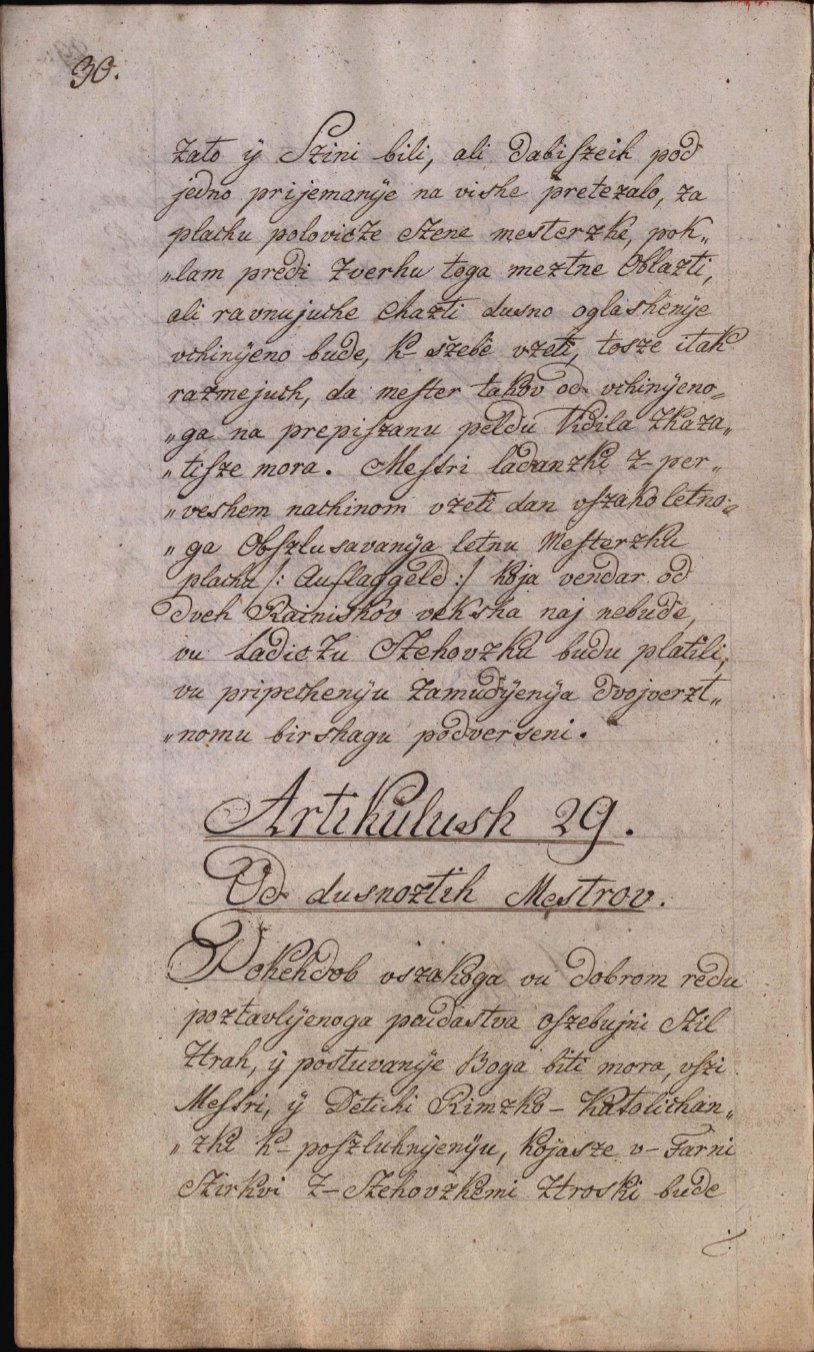 30.
zato ÿ Szini bili, ali dabiszeih pod
jedno prijemanÿe na vishe pretezalo, za
plachu polovicze czene mesterzke, pok„
„lam predi zverhu toga meztne Oblazti,
ali ravnujuche chazti dusno oglashenÿe
vchinÿeno bude, k– szebe vzeti, tosze itak
razmejuch, da mester takov od vchinÿeno=
„ga na prepiszanu peldu Videla zkaza„
„tisze mora. Mestri ladanzki z– per„
„veshem nachinom vzeti dan vszakoletno=
„ga Obszlusavanÿa letnu Mesterzku
plachu /: Auflaggeld :/ koja vendar od
dveh Rainishkov veksha naj nebude,
vu Ladiczu Czehovzku budu platili,
vu pripechenÿu zamudÿenÿa dvojverzt„
„nomu birshagu podverseni.
Artikulush 29.
Od dusnoztih Mestrov.
Pokehdob vszakoga vu dobrom redu
poztavlÿenoga pudastva oszebujni Czil
Ztrah, ÿ postuvanÿe Boga biti mora, vszi
Mestri, ÿ Detichi Rimzko – Katolichan„
„zki k– poszluhnÿenÿu, kojasze v– Farni
Czirkvi z– Czehovzkemi Ztroski bude